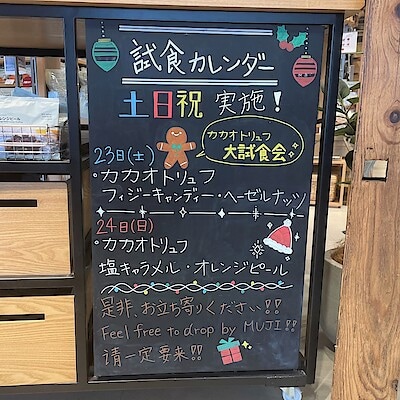 試食カレンダー
土日祝 実施!
カカオトリュフ
大試食会
23日(土)
・カカオトリュフ
フィジーキャンディー・ヘーゼルナッツ
24日(日)
・カカオトリュフ
塩キャラメル・オレンジピール
是非、お立ち寄りください!!
Feel free to drop by MUJI!!
请一定要来!!